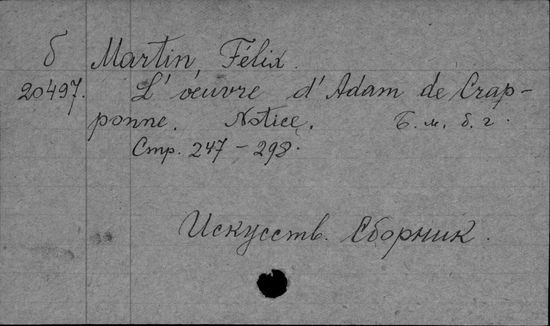 б Martin, Félix.
20497. L'oeuvre d'Adam de Crap-
ponne. Notice. Б. м., б. г.
Стр. 247-298.
Искусств. Сборник.